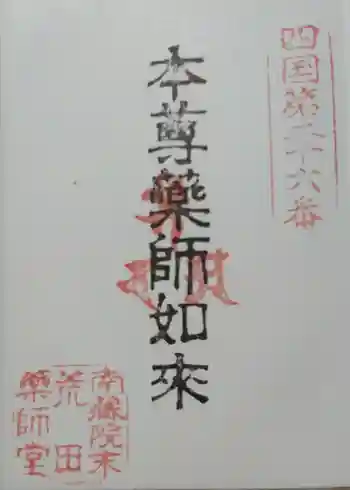 四国第二十六番
本尊薬師如來
南縁院末
荒田
薬師堂